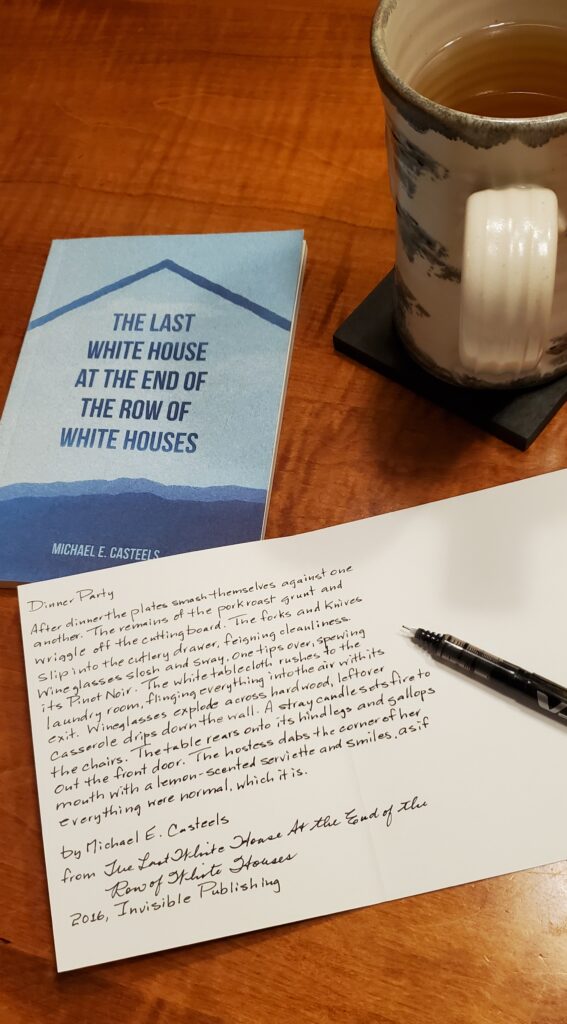 THE LAST
WHITE HOUSE
AT THE END OF
THE ROW OF
WHITE HOUSES
MICHAEL E. CASTEELS
Dinner Party
After dinner the plates smash themselves against one
another. The remains of the pork roast grunt and
wriggle off the cutting board. The forks and knives
slip into the cutlery drawer, feigning cleanliness.
Wine glasses slosh and sway, one tips over, spewing
its Pinot Noir. The white tablecloth rushes to the
laundry room, flinging everything into the air with its
exit. Wineglasses explode across hardwood, leftover
casserole drips down the wall. A stray candle sets fire to
the chairs. The table rears onto its hind legs and gallops
out the front door. The hostess dabs the corner of her
mouth with a lemon-scented serviette and smiles, as if
everything were normal, which it is.
by Michael E. Casteels
from The Last White House At the End of the
Row of White Houses
2016, Invisible Publishing